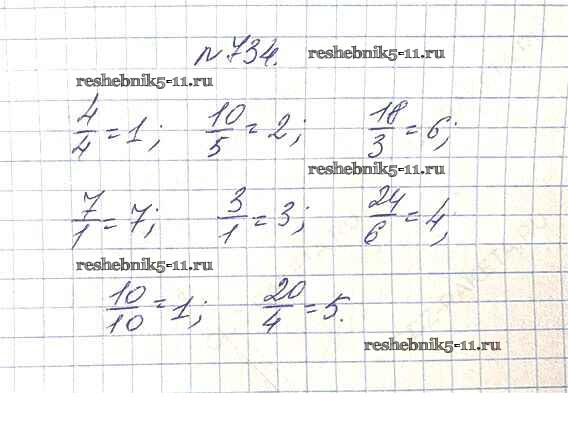 №734. reshebnik5-11.ru
reshebnik5-11.ru
4/4 = 1; 10/5 = 2; 18/3 = 6;
reshebnik5-11.ru
7/1 = 7; 3/1 = 3; 24/6 = 4;
reshebnik5-11.ru
10/10 = 1; 20/4 = 5.
reshebnik5-11.ru